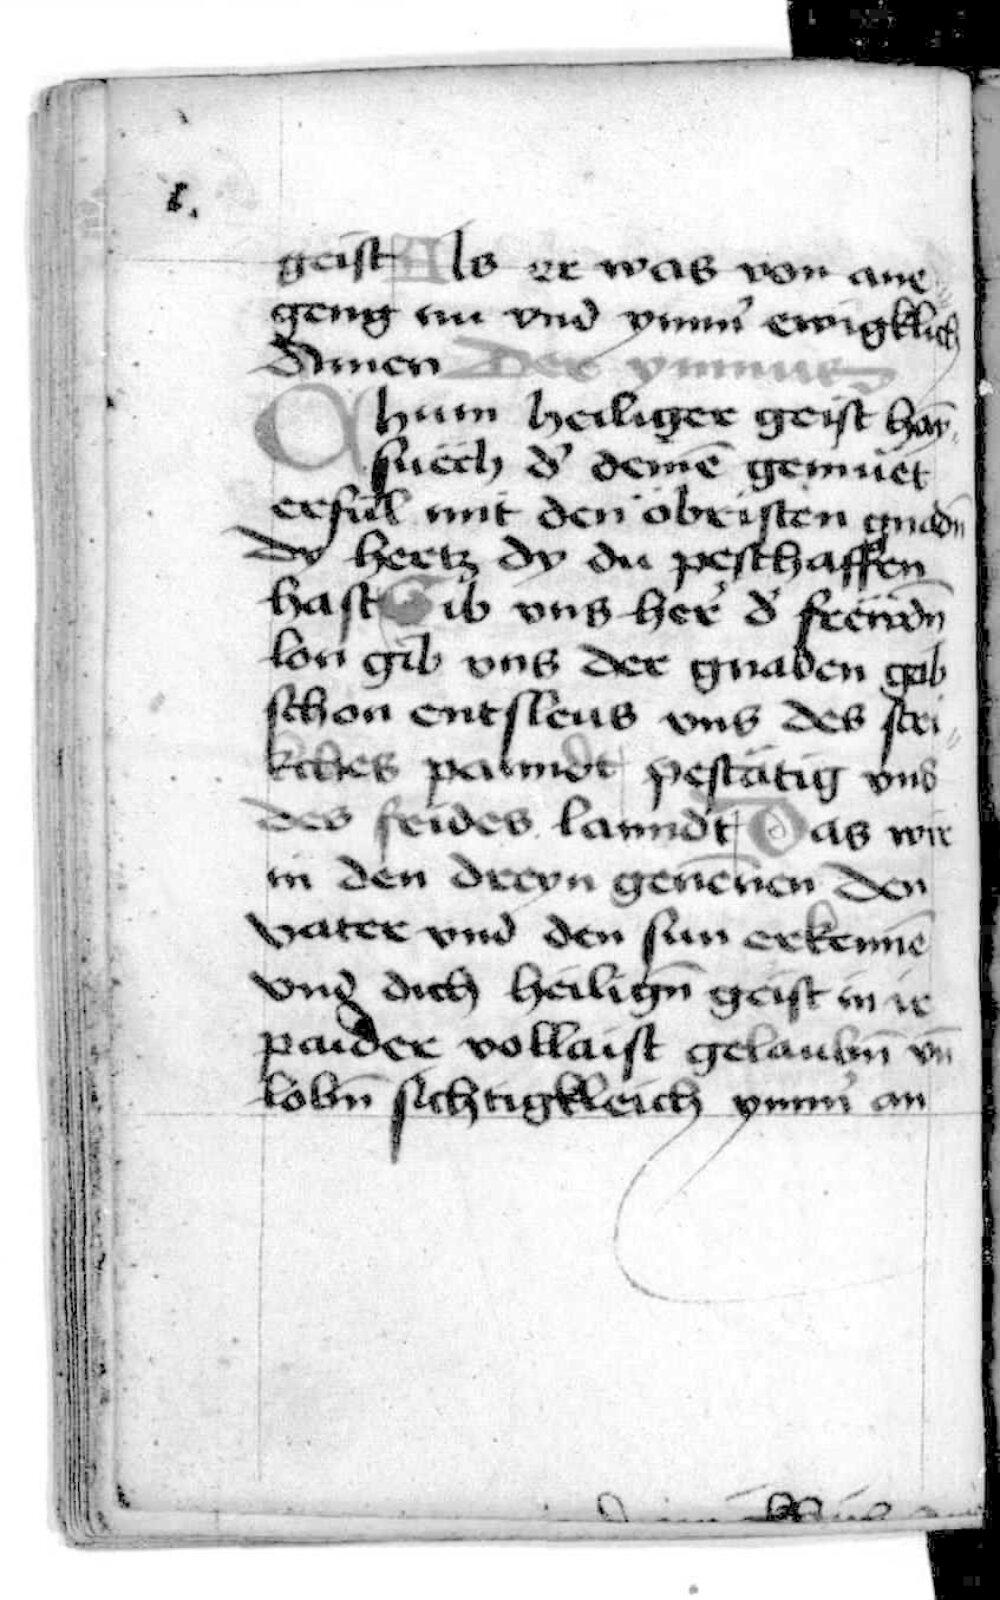 geist Als er was von ane
geng nu vnd ymm̄ ewigklich
Amen Der ymnus
Chum heiliger geist haÿ
suech d' deinē gemuet
erfül mit den öbristen gnadn̄
dy hertz dy du peschaffen
hast Gib vns her' d' freẅdn̄
lon gib vns der gnaden gab
schon entsleus vns des stri
kches panndt pestätig vns
des frides lanndt Das wir
in den dreyn genēnen den
vater vnd den sun erkennē
vnd dich heilign̄ geist in ir
paider vollaist gelaubn̄ vn̄
lobn̄ sichtigkleich ymm̄ an